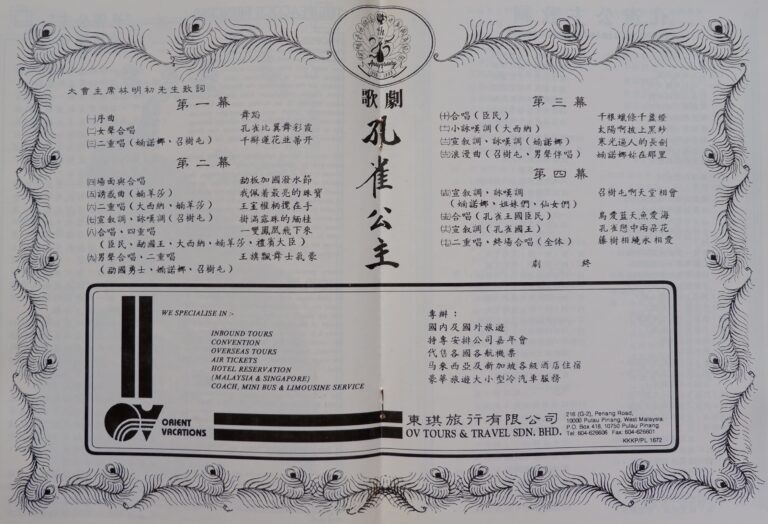 Anniversary
歌劇
孔雀公主
大會主席林明初先生致詞
第一幕
㈠序曲 舞蹈
㈡女聲合唱 孔雀比翼舞彩霞
㈢二重唱(婻諾娜、召樹屯) 千瓣蓮花並蒂开
第二幕
㈣場面與合唱 勐板加國潑水節
㈤誘惑曲(婻羊莎) 我佩着最亮的珠寶
㈥二重唱(大西納、婻羊莎) 王室權柄攬在手
㈦宣叙調、詠嘆調(召樹屯) 掛滿露珠的緬桂
㈧合唱、四重唱 一雙鳳凰飛下來
(臣民、勐國王、大西納、婻羊莎、禮賓大臣)
㈨男聲合唱、二重唱 王旗飄舞士氣豪
(勐國勇士、婻諾娜、召樹屯)
第三幕
㈩合唱(臣民) 千根蠟條千盞燈
小詠嘆調(大西納) 太陽啊披上黑紗
宣叙調、詠嘆調(婻諾娜) 寒光逼人的長劍
浪漫曲(召樹屯、男聲伴唱) 婻諾娜妳在那里
第四幕
宣叙調、詠嘆調 召樹屯啊天堂相會
(婻諾娜、姐妹們、仙女們)
合唱(孔雀王國臣民) 鳥愛藍天魚愛海
宣叙調(孔雀國王) 孔雀戀中兩朵花
二重唱、終場合唱(全体) 藤樹相繞水相愛
劇 終
WE SPECIALISE IN :-
INBOUND TOURS
CONVENTION
OVERSEAS TOURS
AIR TICKETS
HOTEL RESERVATION
(MALAYSIA & SINGAPORE)
COACH, MINI BUS & LIMOUSINE SERVICE
專辦：
國內及國外旅遊
特專安排公司嘉年會
代售各國各航機票
馬來西亞及新加坡各級酒店住宿
豪華旅遊大小型冷汽車服務
ORIENT
VACATIONS
東琪旅行有限公司
OV TOURS & TRAVEL SDN. BHD.
216 (G-2), Penang Road,
10000 Pulau Pinang, West Malaysia.
P.O. Box 418, 10750 Pulau Pinang.
Tel: 604-626606 Fax: 604-626601
KKKP/PL 1672